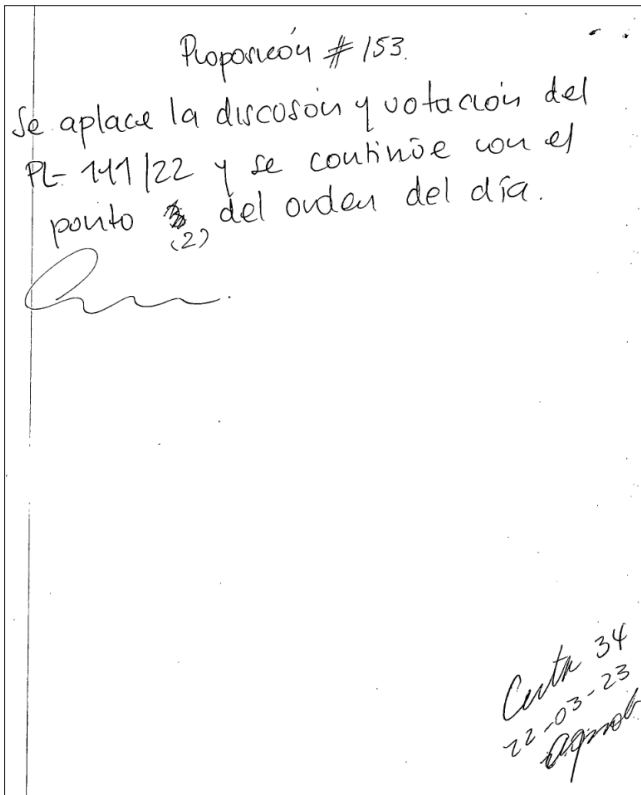 Proposición # 153.
Se aplace la discusión y votación del
PL- 141/22 y se continúe con el
punto (2) del orden del día.
34
22-03-23